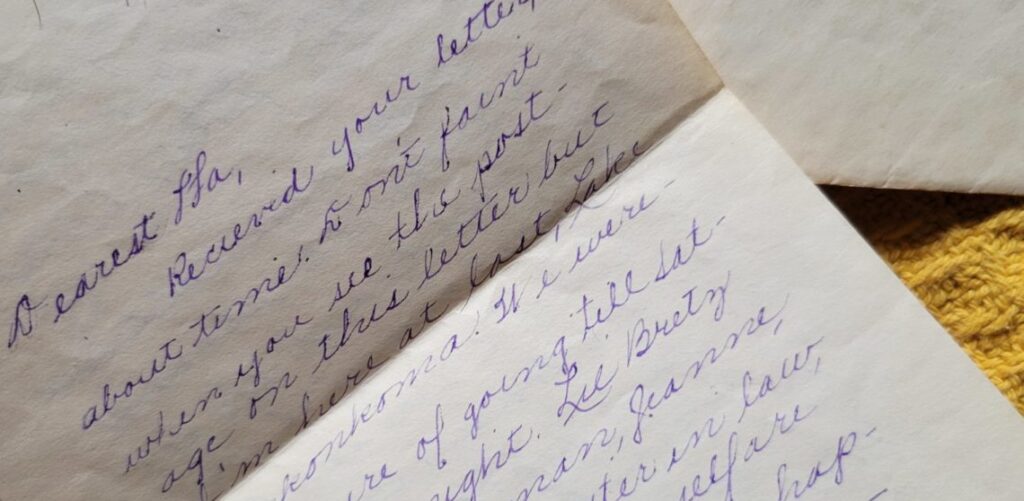 Dearest Ma,
Recievid your letter,
about time. Don't faint
when you see the post-
age on this letter but
I'm here at last, Lake
konkoma. We were
of going till Sat-
Lil Bretz
man, Jeanne,
in law,
hap-